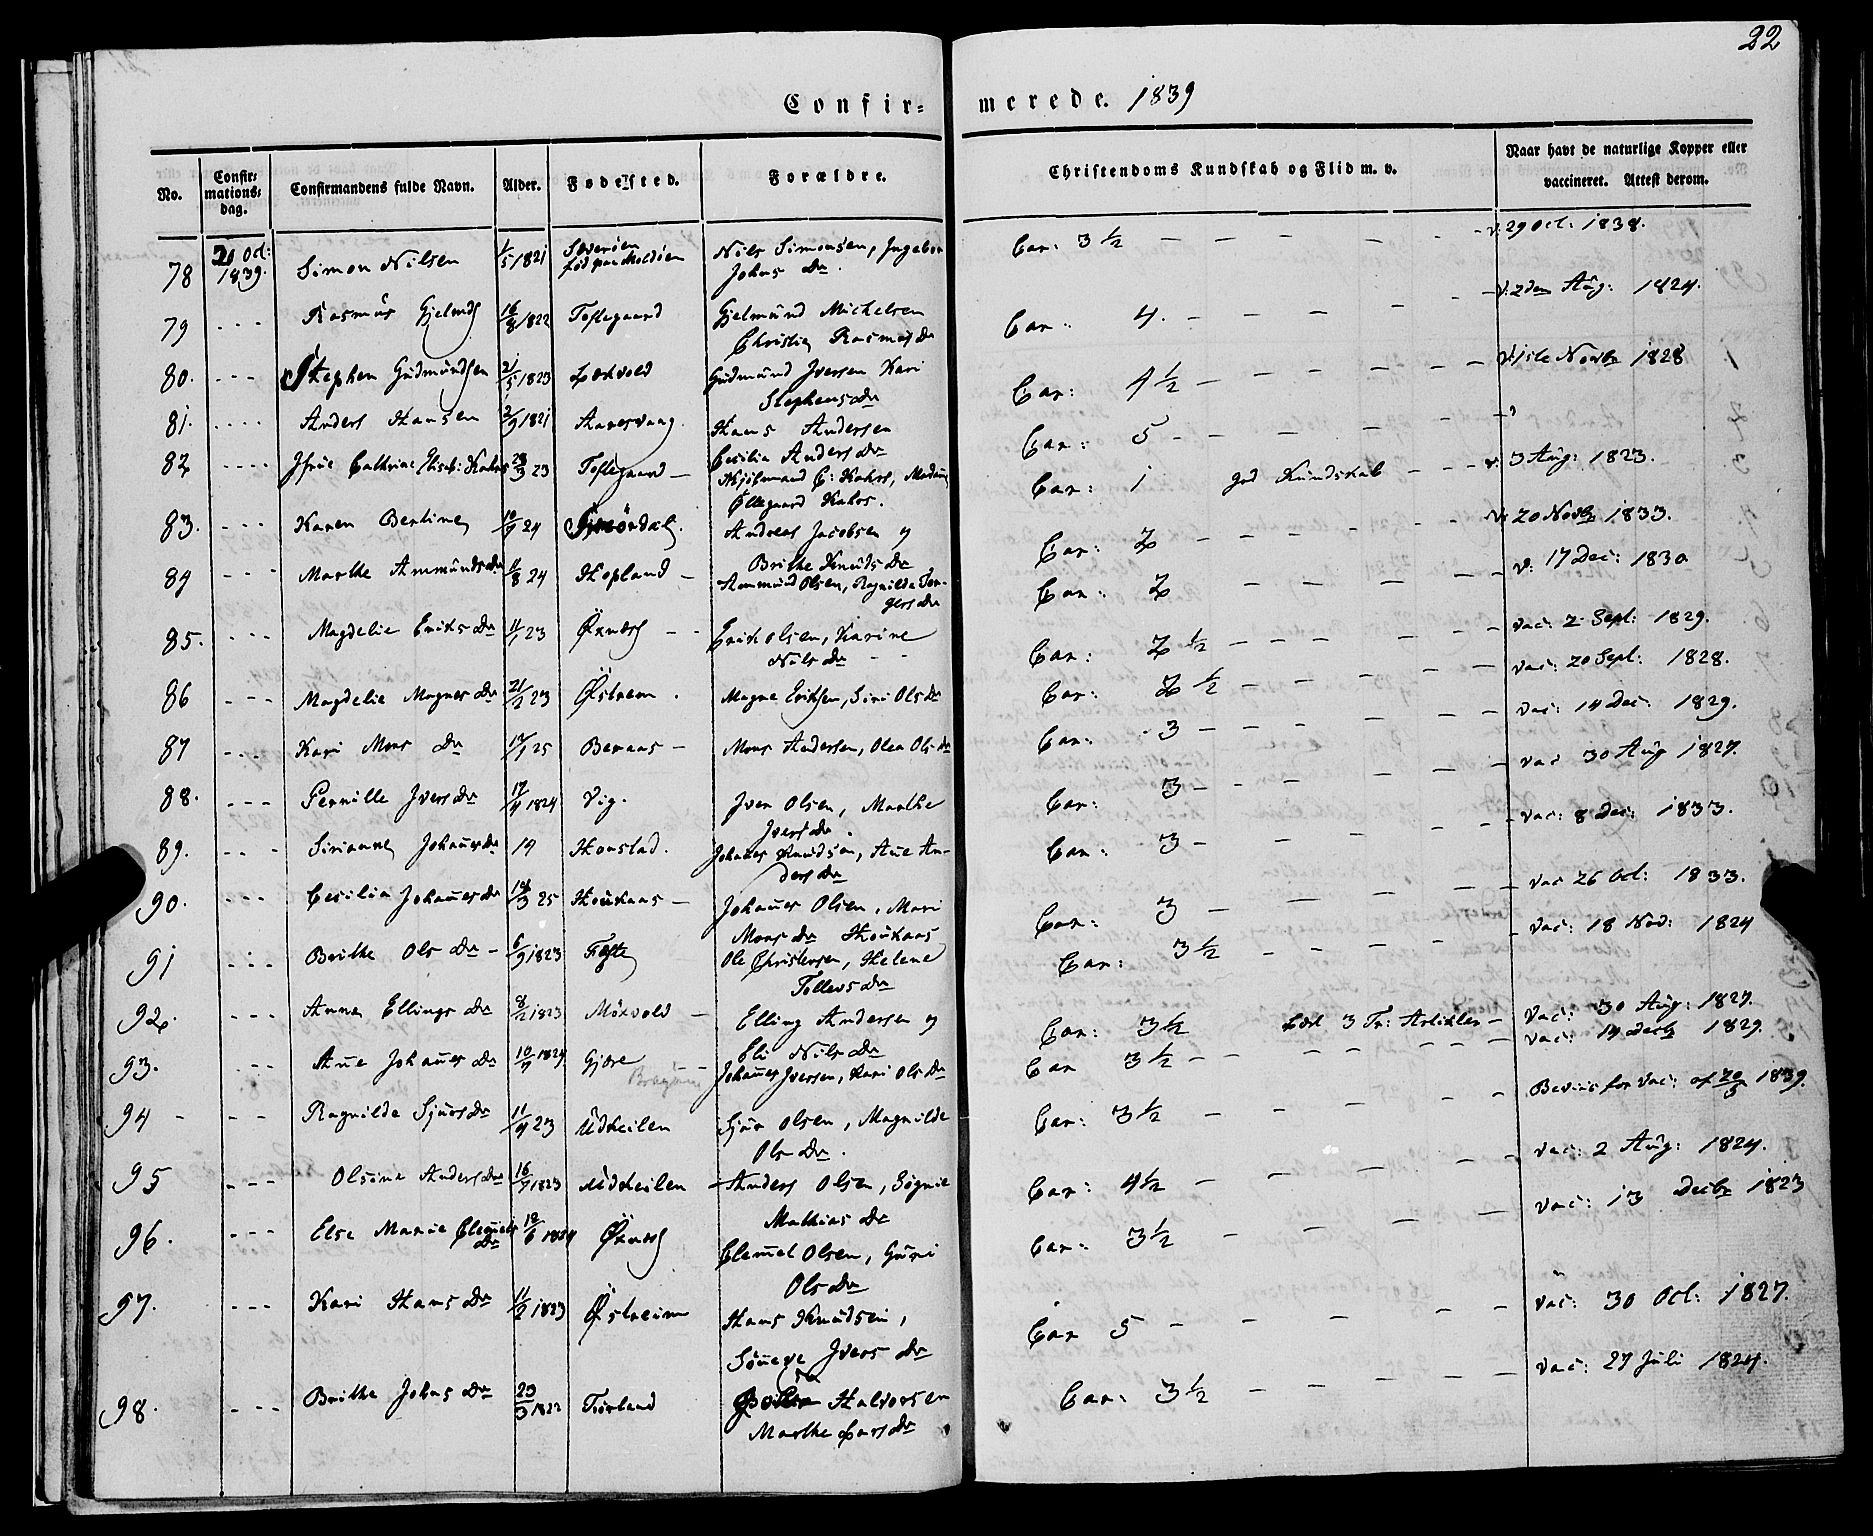 22
Confir- merede. 1839
No. Confir- mations- dag. Confirmandens fulde Navn. Alder. Fødested. Forældre. Christendoms Kundskab og Flid m. v. Naar havt de naturlige Kopper eller vaccineret. Attest derom.
78 20 Oct: 1839. Simon Nilsen 1/5 1821 født paa Nils Simonsen, Ingebor Johns Dr. Car: 3 1/2 - - - v. 29 Oct: 1838.
79 - - - Rasmus 16/8 1822 Toftegaard Gjelmünd Michelsen Christin Rasmus Dr Car: 4. - - - v: 2den Aüg: 1824.
80. - - - Stephen Güdmündsen 21/5 1823 Güdmünd Iversen Kari Stephens Dr Car: 4 1/2 - - - v. 1ste Novbr 1828
81. - - - Anders Hansen 2/9 1821 Hanevaag. Hans Andersen Cecilia Anders Dr Car: 5 - - -
82 - - - Jfrue Cathrine Elisab: Kahrs 23/3 23 Toftegaard - Kjøbmand C: Kahrs, Madam Øllegaard Kahrs. Car: 1 god Kündskab - - - v. 3 Aüg: 1823.
83. - - - Karen Bertine 10/9 24 Andreas Jacobsen og Brithe Knüds Dr Car: 2 - - - v. 20 Novbr 1833.
84 - - - Marthe Ammünds Dr 11/8 24 Hopland - Ammünd Olsen, Ragnilda Tor- gers Dr Car: 2 - - - v: 17 Dec: 1830
85. - - - Magdelie Eriks Dr 11/1 23 - - Erik Olsen, Karine Nils Dr - - Car: 2 1/2 - - - vac: 2 Sept: 1829.
86 - - - Magdelie Magnes Dr 21/2 23 Østrem. Magne Eriksen, Siri Ols Dr Car: 2 1/2 - - - vac: 20 Sept: 1828.
87 - - - Kari Mons Dr 17/1 25 Beraas - Mons Andersen, Olea Ols Dr Car: 3 - - - vac: 14 Dec: 1829.
88. - - - Pernille Ivers Dr 17/4 1824 Vig. Iver Olsen, Marthe Ivers Dr. Car: 3 - - - vac 30 Aüg 1827.
89. - - - Sirianne Johannes Dr 19 Honstad. Johannes Knudsen, Ane An- ders Dr Car: 3 - - - vac: 8 Dec: 1833.
90. - - - Cecilia Johannes Dr 14/3 25 Høükaas - Johannes Olsen, Mari Mons Dr Høükaas Car: 3 - - - vac 26 Oct: 1833.
91 - - - Brithe Ols Dr - 6/9 1823 Ole Christensen, Helene Tollevs Dr Car: 3 1/2 - - - vac: 18 Nov: 1824
92. - - - Anna Ellings Dr 8/2 1823 Møkvold - Elling Andersen og Eli Nils Dr Car: 3 1/2 3 Tr: Artikler - vac: 30 Aüg: 1827.
93. - - - Ane Johannes Dr 10/9 1824. Gjere - - Johannes Iversen, Kari Ols Dr Car 3 1/2 - - - vac: 14 Decbr 1829.
94 - - - Ragnilda Sjürs Dr 11/4 23 Üdkeilen Sjür Olsen, Magnilde Ols Dr. Car: 3 1/2 - - - Beviis for vac: af 20/3 1839.
95 - - - Olsine Anders Dr 16/9 1823 Üdkeilen - Anders Olsen, Signie Mathias Dr Car: 4 1/2 - - - vac: 2 Aüg: 1824.
96. - - - Else Marie Clemets Dr 10/6 1824 Clemet Olsen, Güri Ols Dr Car: 3 1/2 - - - vac: 13 Decbr 1823
97. - - - Kari Hans Dr 11/2 1823 Østreim Hans Knudsen, Søneve Ivers Dr Car 5 - - - vac: 30 Oct: 1827.
98. - - - Brithe Johns Dr 23/3 1822 Torland Halvorsen Marthe Lars Dr Car: 3 1/2 - - - vac: 27 Juli 1824.